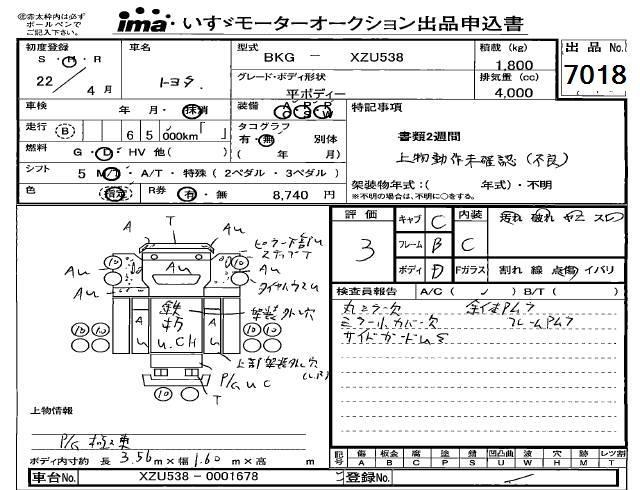 ㊟赤太枠内は必ず
ボールペンで
ご記入下さい。
ima いすゞモーターオークション出品申込書
初度登録 S・H・R 22 / 4月
車名 トヨタ
型式 BKG － XZU538
積載 (kg) 1,800
出品No. 7018
グレード・ボディ形状 平ボディー
排気量 (cc) 4,000
車検 年 月・抹消
装備 A/C P/S P/W
特記事項
走行 B 65 000km「 」
タコグラフ
有・無 別体
( 年 月)
書類2週間
上物動作未確認(不良)
燃料 G・D・HV 他( )
シフト 5 M/T・A/T・特殊（2ペダル・3ペダル）
架装物年式：( 年式)・不明
※不明の場合は、不明に○をする。
色 指定 R券 有・無 8,740 円
評価 3
キャブ C 内装 汚れ 破れ ヤニ スレ
フレーム B C
ボディ D Fガラス 割れ 線 点傷 イバリ
検査員報告 A/C ( ✓ ) B/T ( )
丸ミラー欠
ミラー小カバー欠
サイドガードUS
A T Au
Au Au Au
Au
鉄板
U.CH
A A
架装外し穴
上部架装外し穴
P/G U C
T
10 10 10 10 10
上物情報
P/G 極東
ボディ内寸約 長 3.56 m×幅 1.60 m×高 m
記号 傷A 板金B 腐C 塗P 錆S 凹凸曲U 波W 穴H 跡M レツ割T
車台No. XZU538－0001678
登録No.